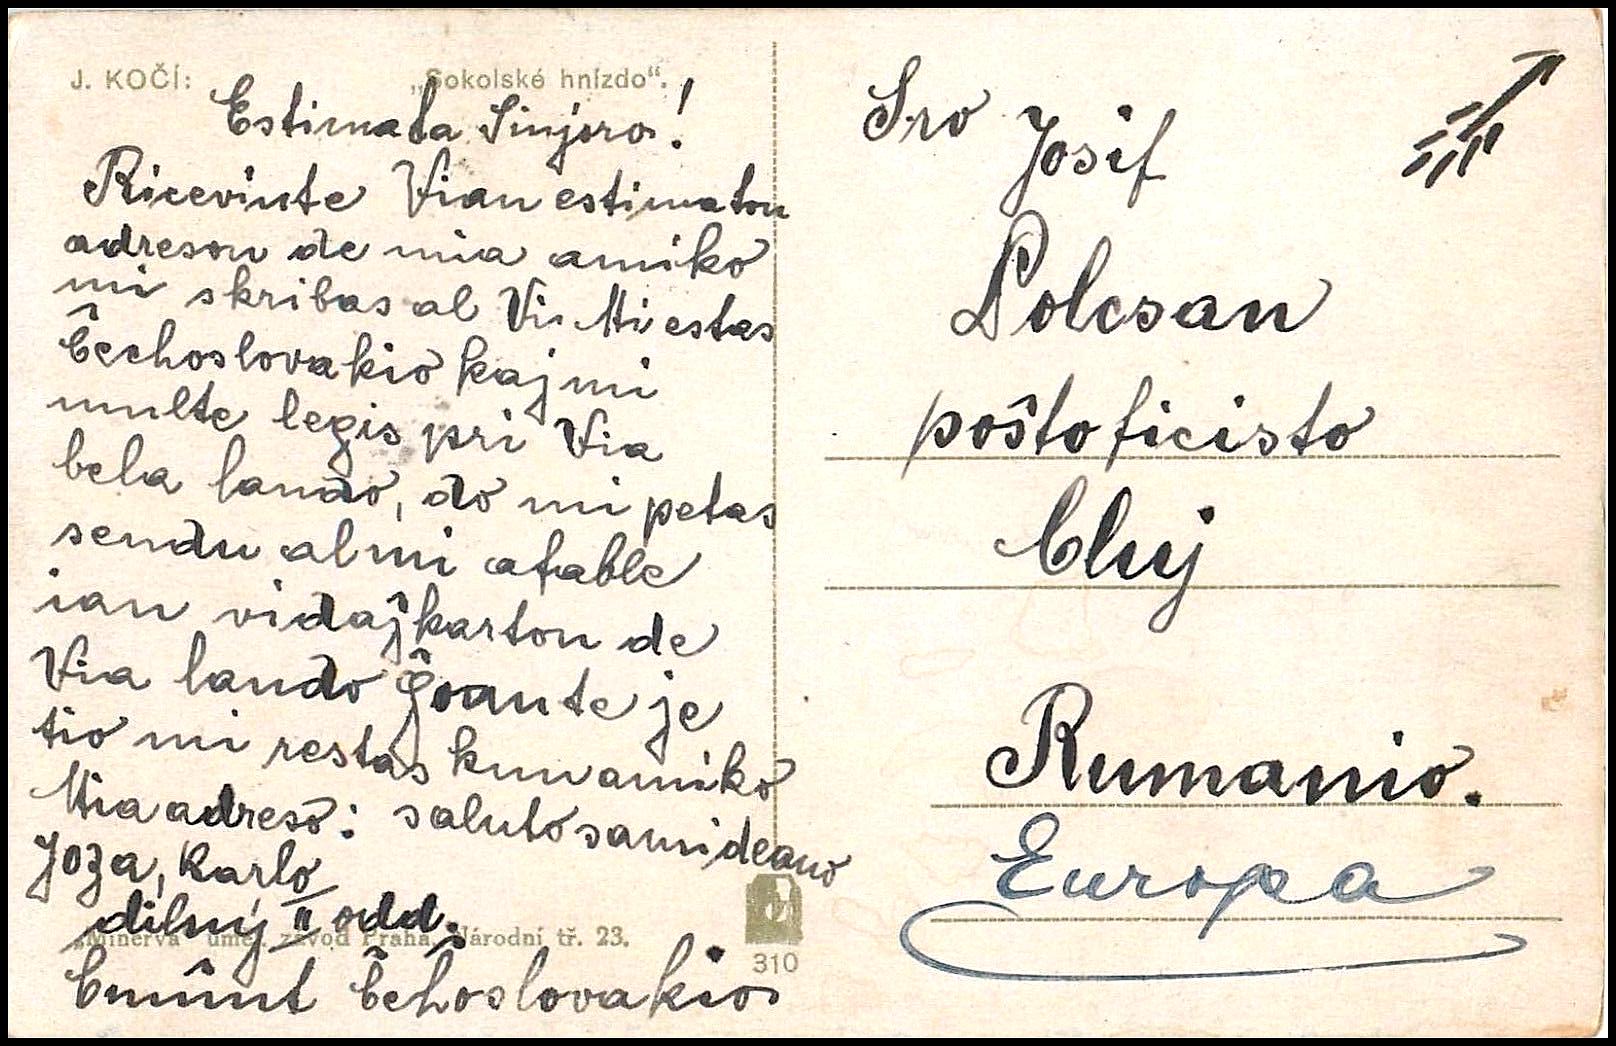 J. KOČÍ: „Sokolské hnízdo“.
Estimata Sinjoro!
Ricevinte Vian estimaton
adreson de mia amiko
mi skribas al Vi. Mi estas
Ĉeĉhoslovakio kaj mi
multe legis pri Via
bela lando, do mi petas
sendu al mi afable
ian vidaĵkarton de
Via lando Ĝoante je
tio mi restas kun amiko
Mia adreso: saluto samideano
Joza, Karlo
dilny II odd.
„Minerva“ uměl. závod Praha, Národní tř. 23.
Ĉeĥoslovakio
310
Sro Josif
Polcsan
poŝtoficisto
Cluj
Rumanio.
Europa